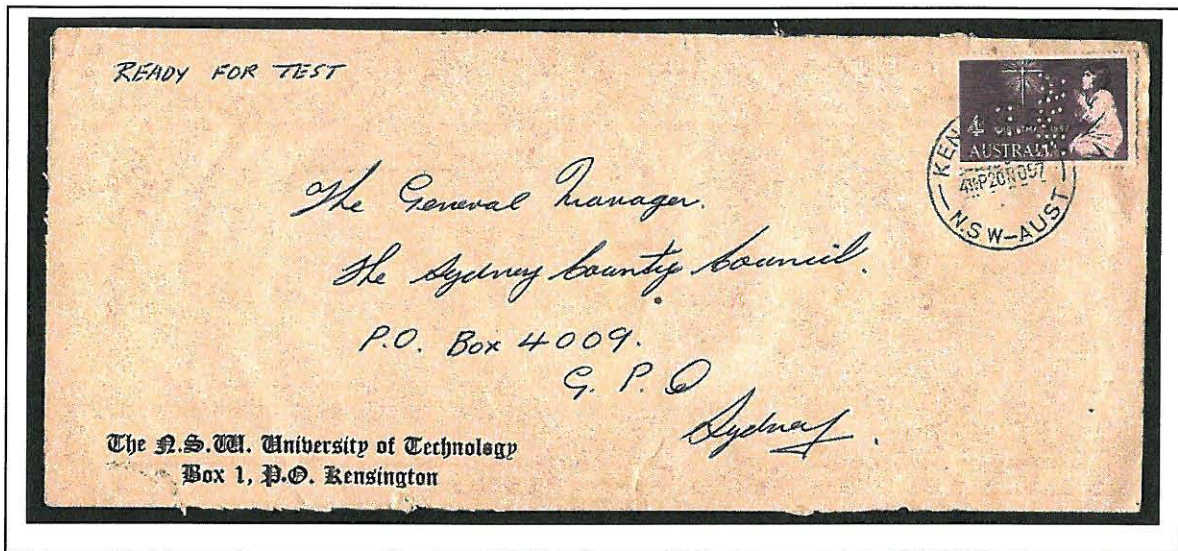 READY FOR TEST
4
CHRISTMAS 1957
AUSTRALIA
KEN
4 P 20 NO 57
N.S.W-AUST
The General Manager.
The Sydney County Council.
P.O. Box 4009.
G. P. O
Sydney.
The N.S.W. University of Technology
Box 1, P.O. Kensington